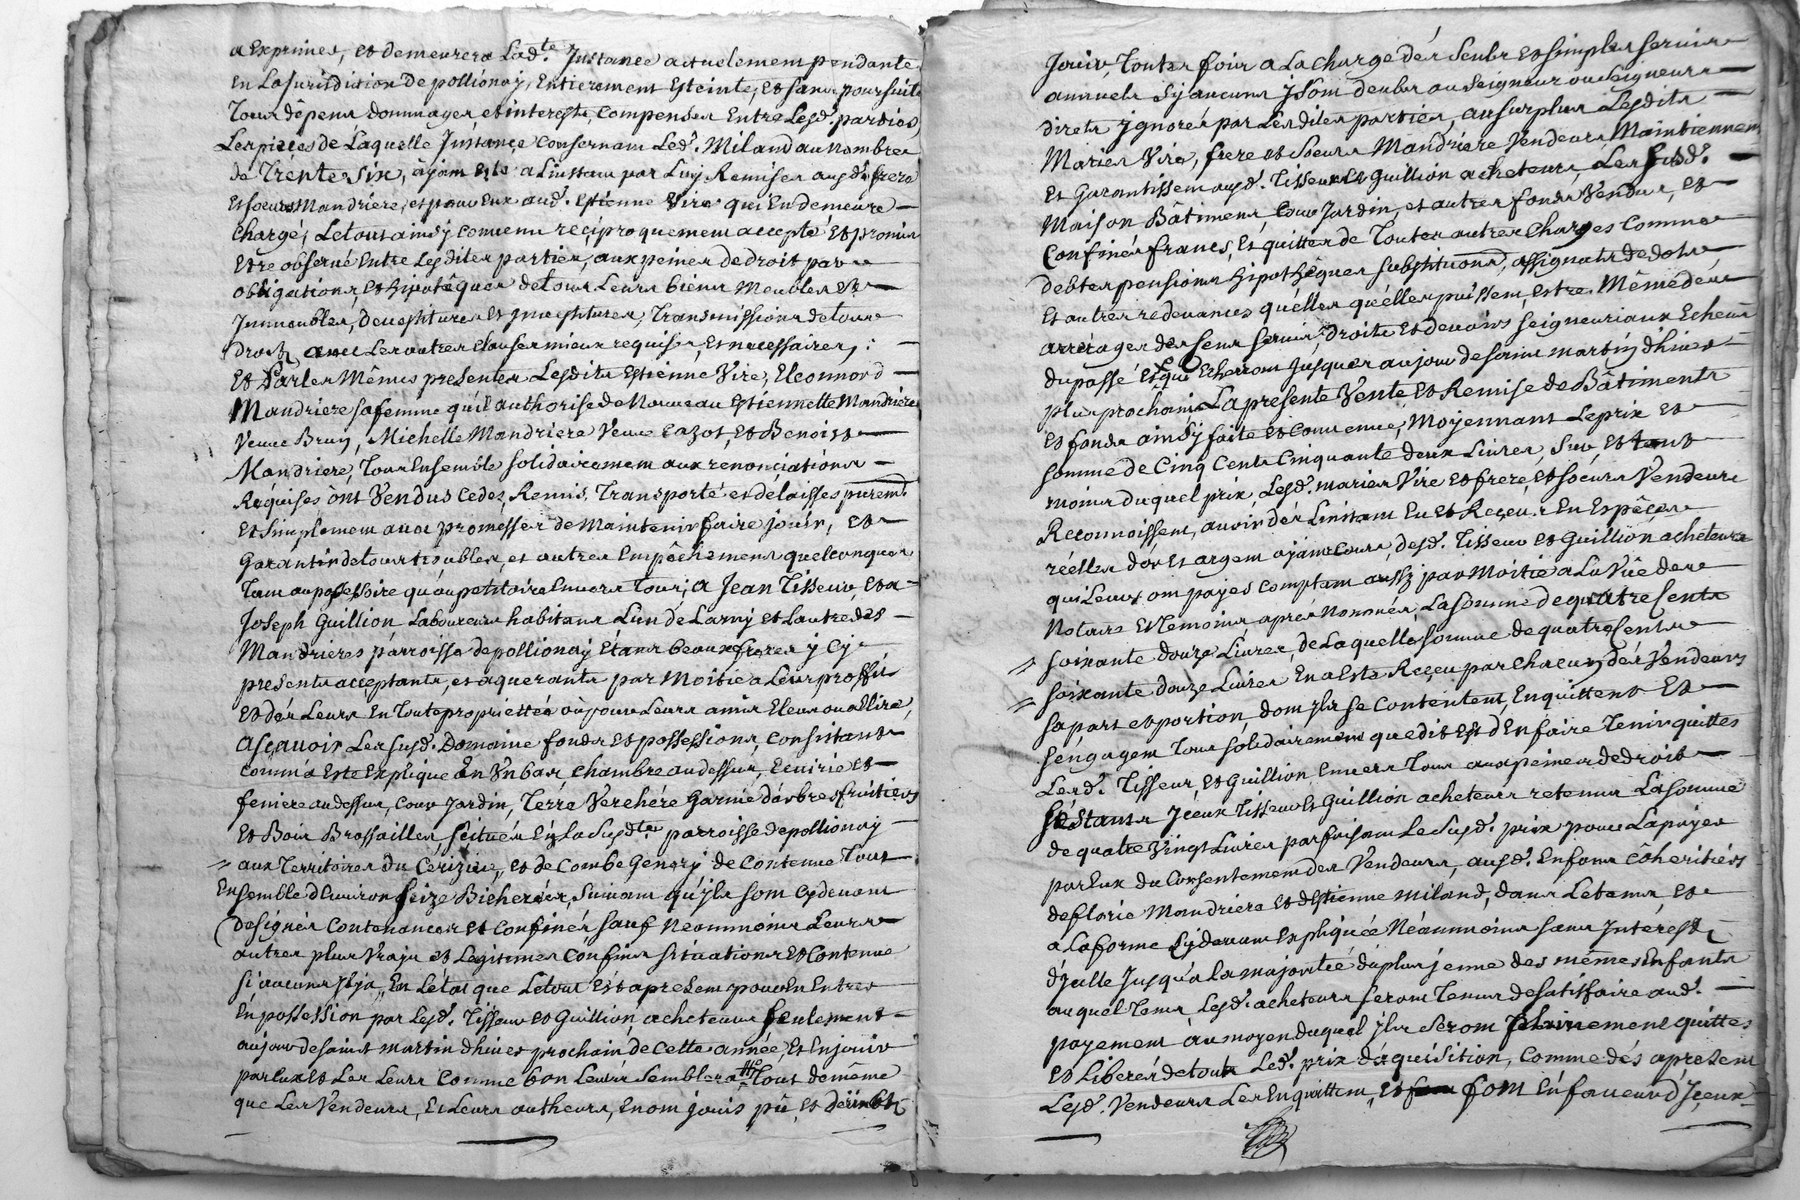 a Exprimer, et demeurera Lad.te Instance actuelement pendante
En La Juridiction de pollionay, Entierement Esteinte, et sans poursuite
Tous dêpens dommages et interests, Compensés Entre Lesd. parties,
Les pieces de Laquelle Instance Consernant Led. Miland au nombre
de Trente Six, ayant Esté a L'instant par Luy Remises ausd. frere
et soeurs Mandriere, et pour Eux aud. Estienne Vire qui En demeure
Chargé, Le tout ainsy convenu reciproquement accepté et promis
Estre observé Entre Lesdites parties, aux peines de droit par
obligations, et hipotêques de tous Leurs biens Meubles et
Immeubles, devestitures et investitures, Transmissions de tous
droits avec Les autres clauses mieux requises, et necessaires, :
Et Par Les Mêmes presentes Lesdits Estienne Vire, Eleonnord
Mandriere sa femme qu'il authorise de Nouveau Estiennette Mandriere
Veuve Brun, Michelle Mandriere Veuve Cazot, et Benoist
Mandriere, Tous Ensemble solidairement aux renonciations
Requises ont Vendus Cedez, Remis, Transporté et délaissés purem.t
et simplement avec promesses de Maintenir faire jouir, et
Garantir de tous troubles, et autres Empêchemens quelconques
Tant au possessoire qu'au petitoire Envers Tous, a Jean Tisseur, et a
Joseph Guillion Laboureurs habitans L'un de Larny et L'autre des
Mandrieres parroisse de pollionay Etans beaux freres y Cy
presents acceptants, et aquerants par Moitié a Leur proffit
et des Leurs En toute proprietté ou pour Leurs amis Eleus ou a Elire,
Asçavoir Les susd. Domaine fonds et possessions, Consistant
comm'a Esté Expliqué En Un bas chambre au dessus, Ecuirie et
feniere au dessus, Cour Jardin, Terre Verchére Garnie d'arbres fruitiers
et Bois Brossailles, scitués En La Susd.te parroisse de pollionay
aux Territoires du Cérizier, et de Combe Genory de Contenue Tout
Ensemble d'Environ seize Bicherées, suivant qu'yls sont cy devant
Designés Contenances et Confinés sauf Neanmoins Leurs
autres plus Vrays et Legitimes Confins situations et Contenue
si aucuns y'a, En L'état que Le tout Est a present pour En Entrer
En possession par Lesd. Tisseur et Guillion, acheteurs seulement
au jour de saint martin d'hiver prochain de Cette année, et En jouir
par Eux et Les Leurs Comme bon Leur semblera Tout de même
que Les Vendeurs, et Leurs autheurs, En ont jouis pû, et deü
Jouir, Toutes fois a La charge des Seuls et simples servis
annuels sy aucuns y sont deubs au seigneur ou seigneurs
directs ygnorés par Lesdites parties, au surplus Lesdits
Mariés Vire, frere et soeurs Mandriere Vendeurs Maintiennent
et Garantissent ausd. Tisseur et Guillion acheteurs Les susd.
Maison Bâtiment Cour Jardin, et autres fonds Vendus, et
Confinés francs, et quittes de Toutes autres charges Comme
debtes pensions hipothêques substitutions, assignats de dots
et autres redevances qu'elles qu'elles puissent estre. Même des
arrerages des sens servis, droits et devoirs seigneuriaux Echeus
du passé et qui Echerront jusques au jour de saint martin d'hiver
plus prochain La presente Vente et Remise de Bâtiments
et fonds ainsy faite et convenue, Moyennant Le prix et
somme de Cinq Cents Cinquante deux Livres, Sur, et tant
moins duquel prix, Lesd. mariés Vire et frere, et soeurs Vendeurs
Reconnoissent, avoir dés L'instant Eu et Reçeu : En Espêces
réelles d'or et argent ayant Cours desd. Tisseur et Guillion acheteurs
qui Leurs ont payés Comptant aussy par Moitié a La Vüe de
Notaire et temoins aprés Nommés La somme de quatre Cents
soixante douze Livres de Laquelle somme de quatre Cents
soixante douze Livres En a Esté Reçeu par chacun des Vendeurs
sa part et portion dont yls se Contentent, En quittent et
s'engagent Tous solidairement que dit est d'En faire Tenir quittes
Lesd. Tisseur, et Guillion Envers Tous aux peines de droit
Estants yceux Tisseur et Guillion acheteurs retenus La somme
de quatre Vingt Livres parfaisant Le susd. prix pour La payer
par Eux du Consentement des Vendeurs, ausd. Enfans côheritiers
de florie Mandriere et d'Estienne miland, dans Le tems, et
a La forme Cy devant Expliquée Néanmoins sans Interest
d'jcelle Jusqu'a La majoritée du plus jeune des mêmes Enfants
auquel Tems Lesd. acheteurs seront Tenus de satisfaire aud.
payement au moyen duquel yls seront plainement quittes
et Liberés de tout Led. prix d'aquisition, Comme dés apresent
Lesd. Vendeurs Les En quittent, et font En faveur d'Jceux